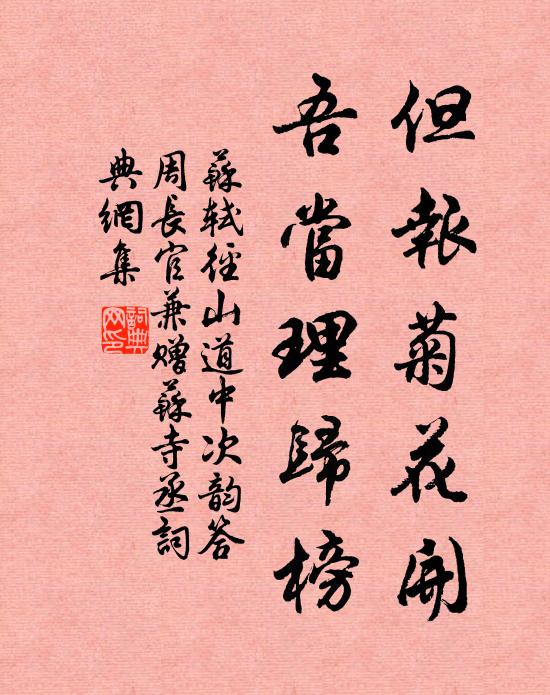 但報菊花開
吾當理歸榜
蘇軾徑山道中次韵答
周長官兼贈蘇寺丞詞
典網集
詞典
网印